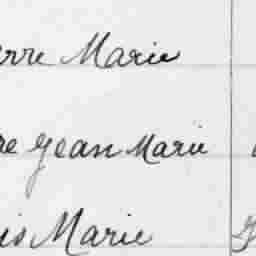 erre Marie
re Jean Marie
is Marie